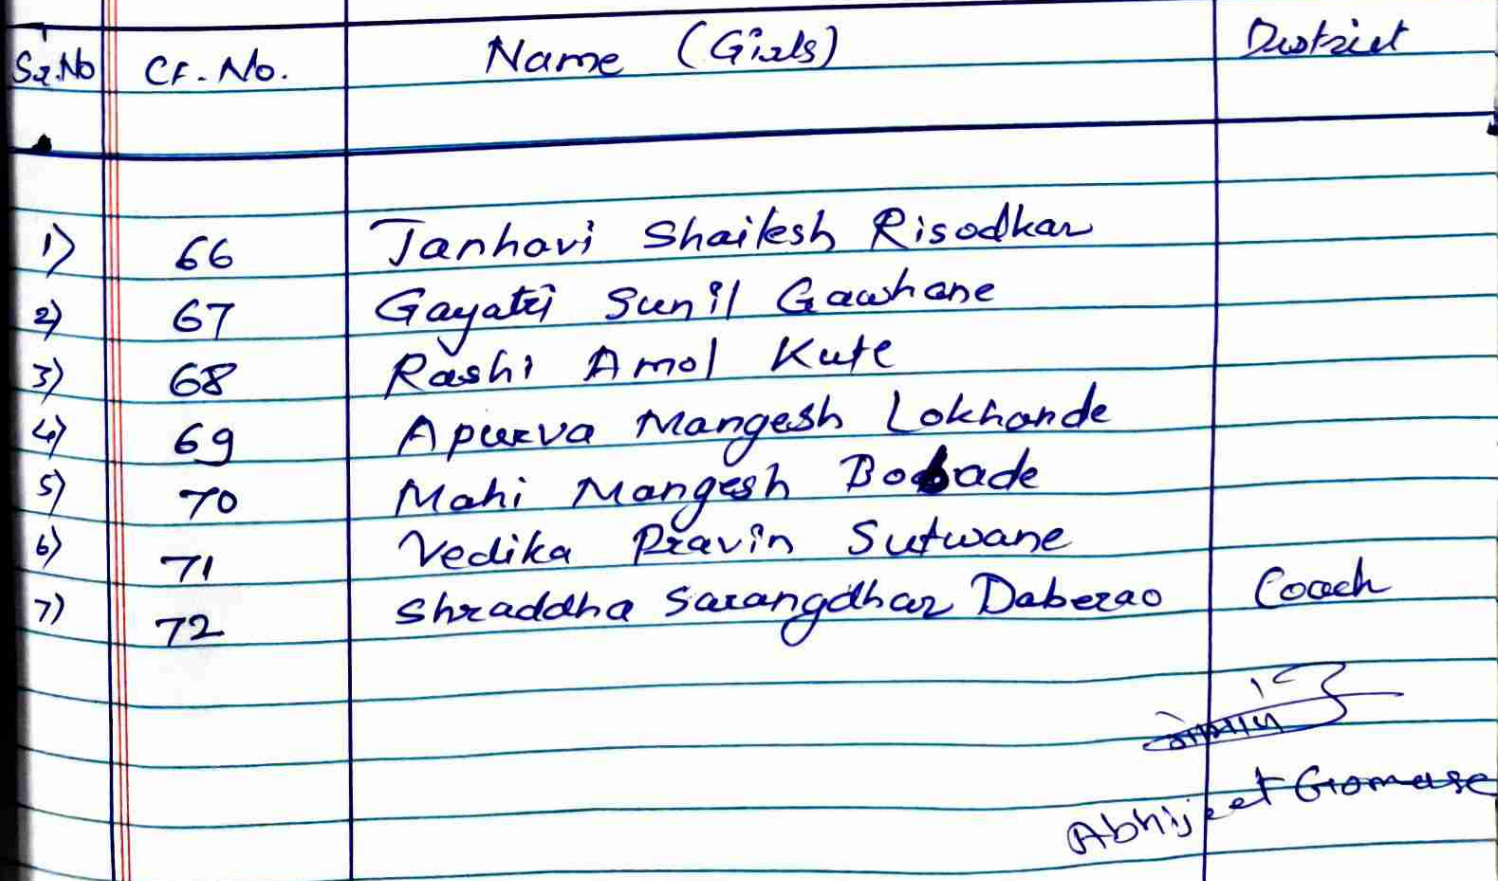 Sr.No Cf. No. Name (Girls) District
1) 66 Janhavi Shailesh Risodkar
2) 67 Gayatri Sunil Gawhane
3) 68 Rashi Amol Kute
4) 69 Apurva Mangesh Lokhande
5) 70 Mahi Mangesh Bobade
6) 71 Vedika Pravin Sutwane
7) 72 Shraddha Sarangdhar Daberao Coach
Abhijeet Gomase